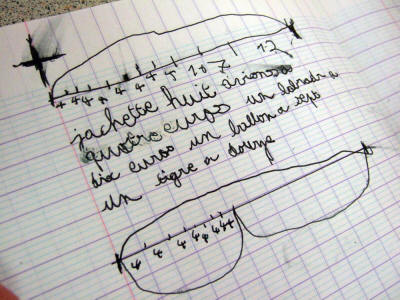 4 4 4 4 4 4 4 10 7 12
jachette huit avions a
quatre euros un labradr a
dix euros un ballon a sept
un tigre a douze
4 4 4 4 4 4 4 4